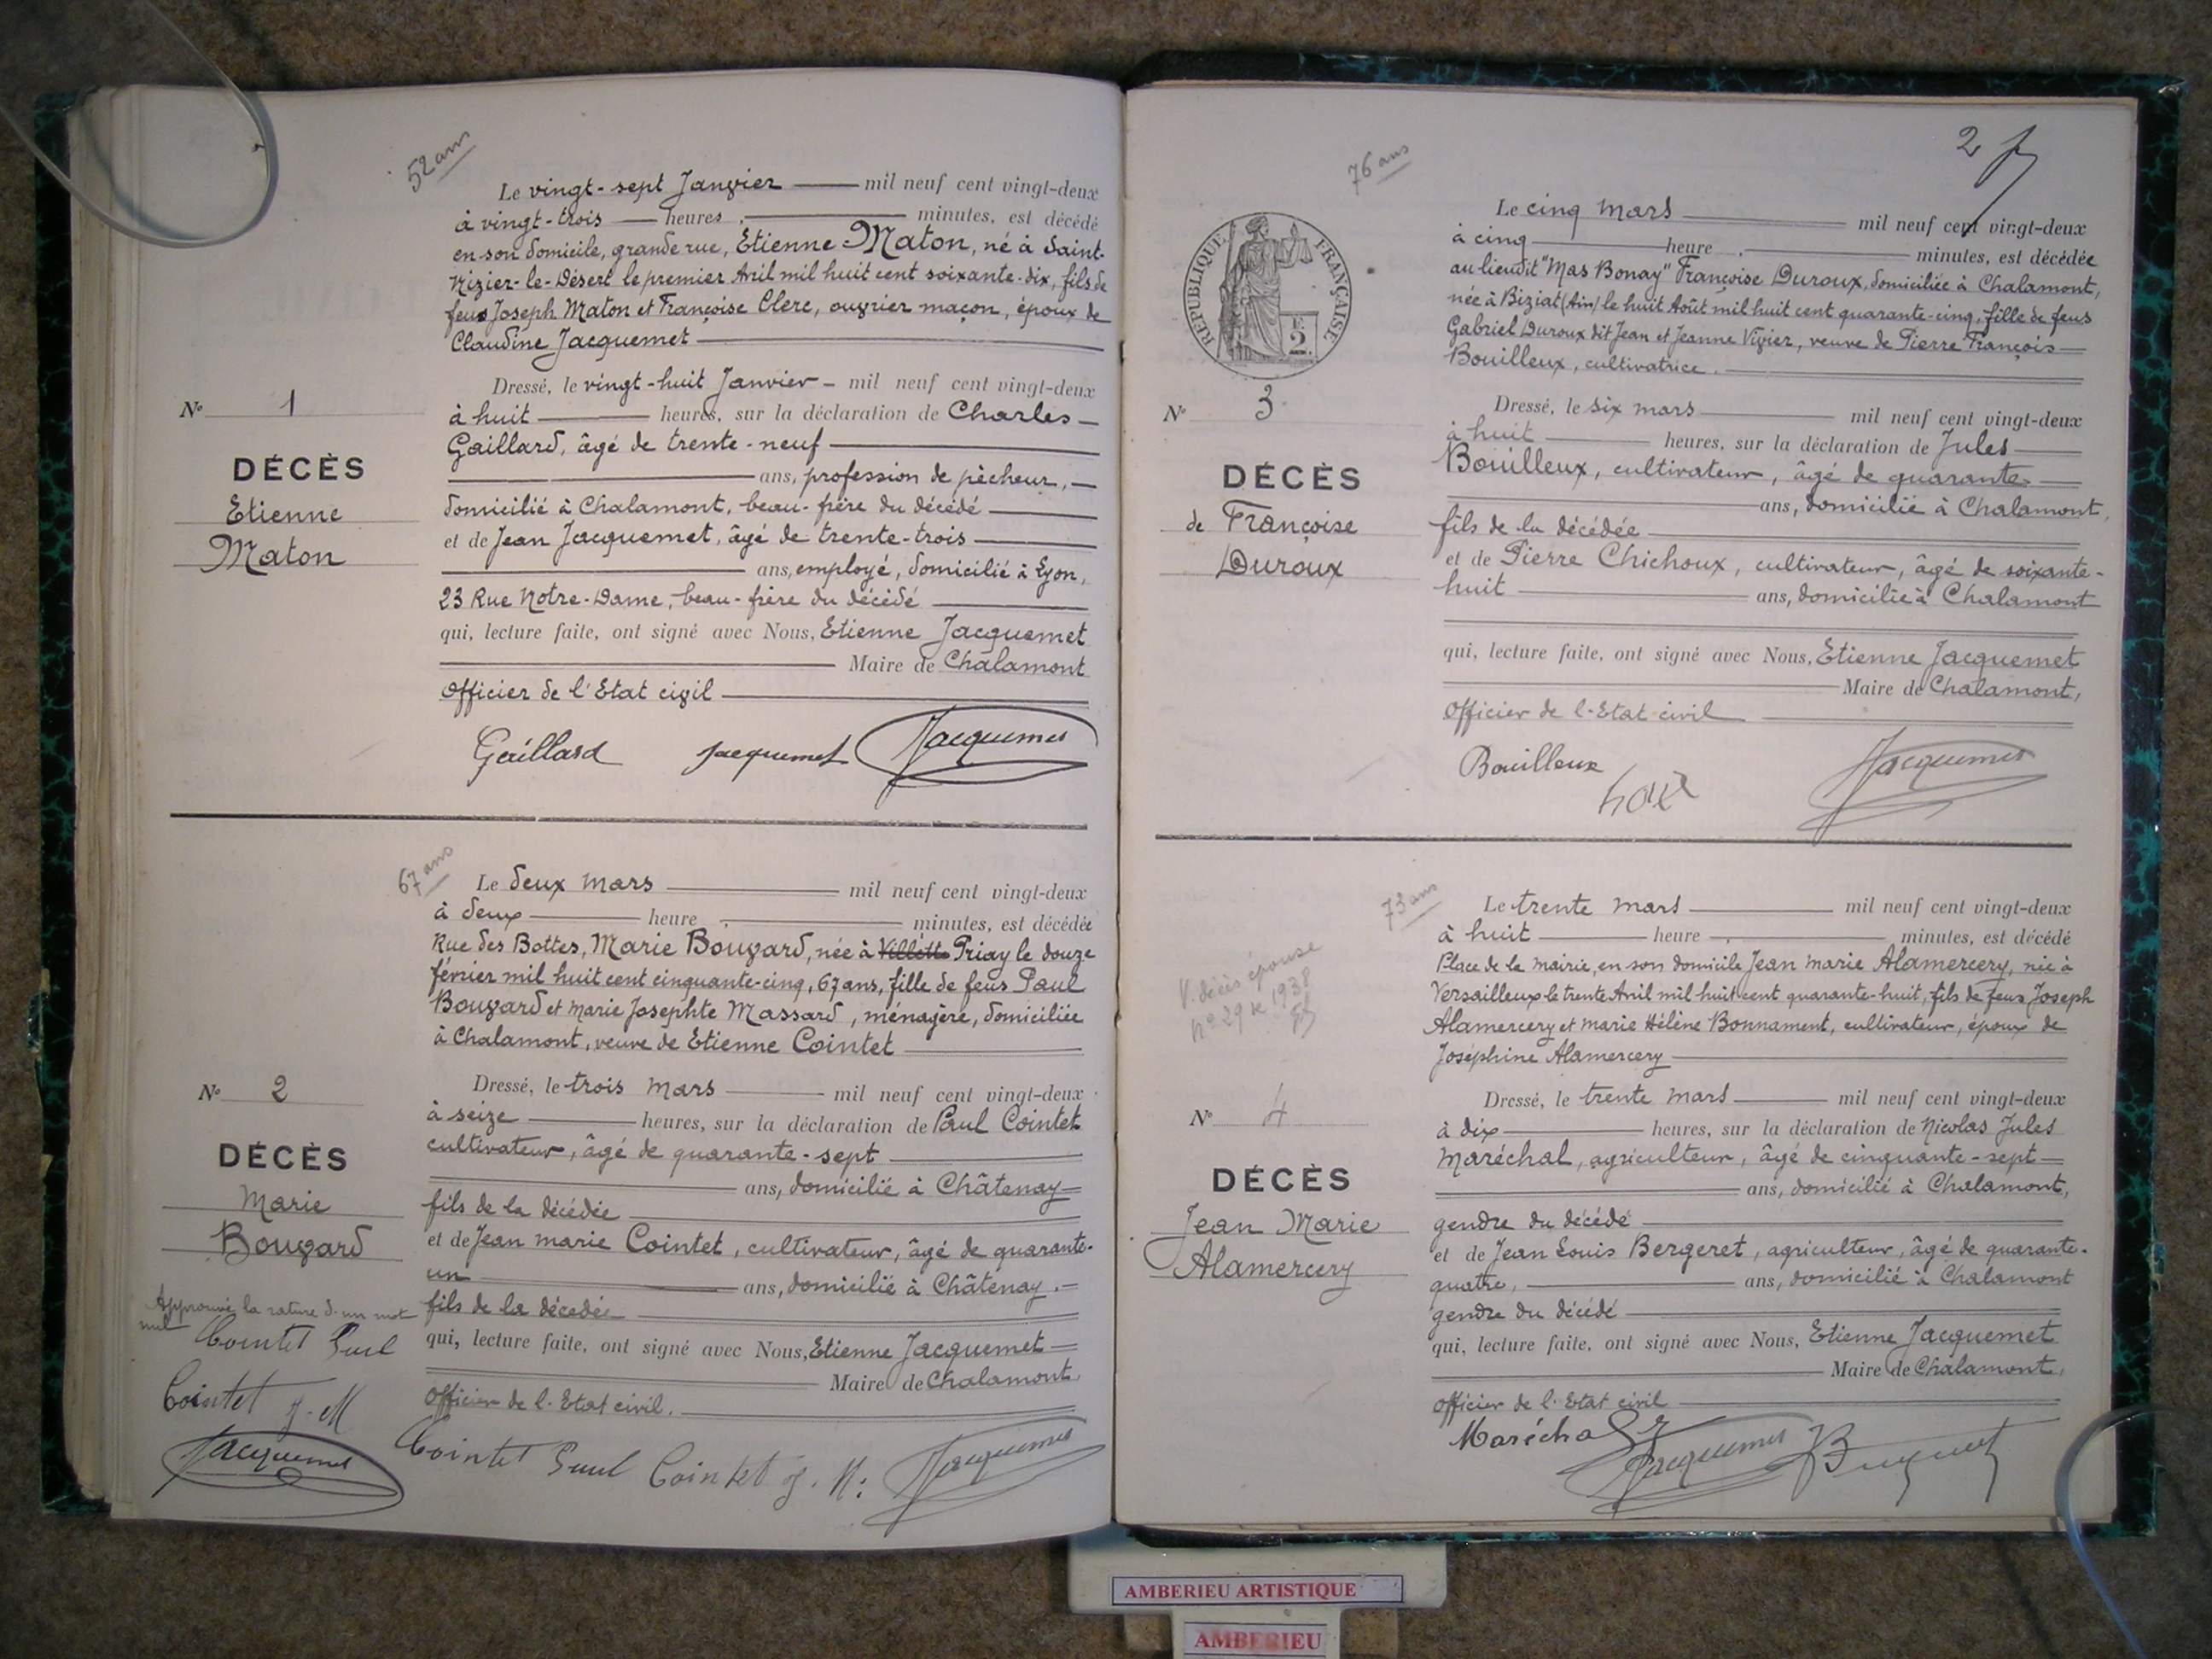 52 ans
Le vingt-sept Janvier mil neuf cent vingt-deux
à vingt-trois heures, minutes, est décédé
en son domicile, grande rue, Etienne Maton, né à Saint-
Nizier-le-Désert le premier Avril mil huit cent soixante-dix, fils de
feus Joseph Maton et Françoise Clerc, ouvrier maçon, époux de
Claudine Jacquemet
Dressé, le vingt-huit Janvier mil neuf cent vingt-deux
à huit heures, sur la déclaration de Charles
Gaillard, âgé de trente-neuf
ans, profession de pêcheur,
domicilié à Chalamont, beau-frère du décédé
et de Jean Jacquemet, âgé de trente-trois
ans, employé, domicilié à Lyon,
23 Rue Notre-Dame, beau-frère du décédé
qui, lecture faite, ont signé avec Nous, Etienne Jacquemet
Maire de Chalamont
Officier de l'Etat civil
Gaillard Jacquemet Jacquemet
N° 1
DÉCÈS
Etienne
Maton
67 ans
Le deux Mars mil neuf cent vingt-deux
à deux heure, minutes, est décédée
Rue des Bottes, Marie Bouvard, née à Villette Priay le douze
février mil huit cent cinquante-cinq, 67 ans, fille de feus Paul
Bouvard et Marie Josephte Massard, ménagère, domiciliée
à Chalamont, veuve de Etienne Cointet
Dressé, le trois Mars mil neuf cent vingt-deux
à seize heures, sur la déclaration de Paul Cointet
cultivateur, âgé de quarante-sept
ans, domicilié à Châtenay
fils de la décédée
et de Jean Marie Cointet, cultivateur, âgé de quarante-
un ans, domicilié à Châtenay.
fils de la décedée
qui, lecture faite, ont signé avec Nous, Etienne Jacquemet
Maire de Chalamont,
Officier de l'Etat civil.
Cointet Paul Cointet J. M. Jacquemet
N° 2
DÉCÈS
Marie
Bouvard
Approuvé la rature d'un mot
nul
Cointet Paul
Cointet J-M
Jacquemet
2
76 ans
RÉPUBLIQUE FRANÇAISE
2
Le cinq Mars mil neuf cent vingt-deux
à cinq heure, minutes, est décédée
au lieudit "Mas Bonay" Françoise Duroux, domiciliée à Chalamont,
née à Biziat (Ain) le huit Août mil huit cent quarante-cinq, fille de feus
Gabriel Duroux dit Jean et Jeanne Vivier, veuve de Pierre François
Bouilleux, cultivatrice.
Dressé, le six mars mil neuf cent vingt-deux
à huit heures, sur la déclaration de Jules
Bouilleux, cultivateur, âgé de quarante
ans, domicilié à Chalamont,
fils de la décédée
et de Pierre Chichoux, cultivateur, âgé de soixante-
huit ans, domicilié à Chalamont
qui, lecture faite, ont signé avec Nous, Etienne Jacquemet
Maire de Chalamont,
Officier de l'Etat civil
Bouilleux Jacquemet
N° 3
DÉCÈS
de Françoise
Duroux
73 ans
Le trente Mars mil neuf cent vingt-deux
à huit heure, minutes, est décédé
Place de la Mairie, en son domicile Jean Marie Alamercery, née à
Versailleux le trente Avril mil huit cent quarante-huit, fils de feus Joseph
Alamercery et Marie Hélène Bonnament, cultivateur, époux de
Joséphine Alamercery
Dressé, le trente Mars mil neuf cent vingt-deux
à dix heures, sur la déclaration de Nicolas Jules
Maréchal, agriculteur, âgé de cinquante-sept
ans, domicilié à Chalamont,
gendre du décédé
et de Jean Louis Bergeret, agriculteur, âgé de quarante-
quatre, ans, domicilié à Chalamont
gendre du décédé
qui, lecture faite, ont signé avec Nous, Etienne Jacquemet
Maire de Chalamont,
Officier de l'Etat civil
Maréchal Jacquemet
V. décès épouse
n° 29 de 1938
N° 4
DÉCÈS
Jean Marie
Alamercery
AMBERIEU ARTISTIQUE
AMBERIEU